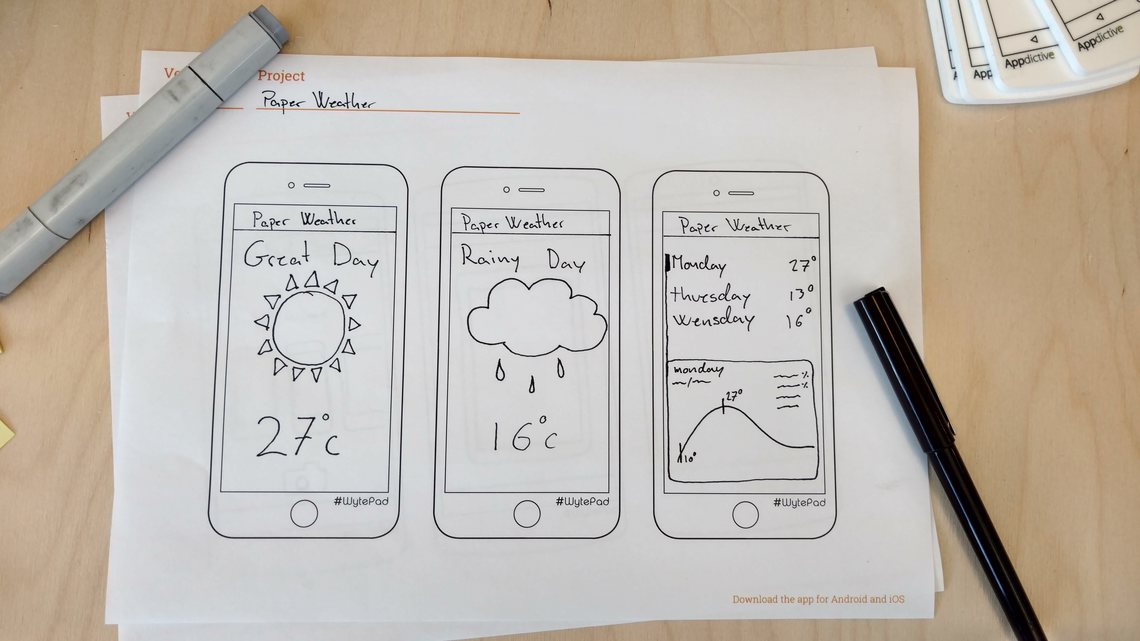 Project
Paper Weather
Paper Weather
Great Day
27°c
#WytePad
Paper Weather
Rainy Day
16°c
#WytePad
Paper Weather
Monday 27°
thursday 13°
Wensday 16°
monday
%
%
27°
10°
#WytePad
Download the app for Android and iOS
Appdictive
Appdictive